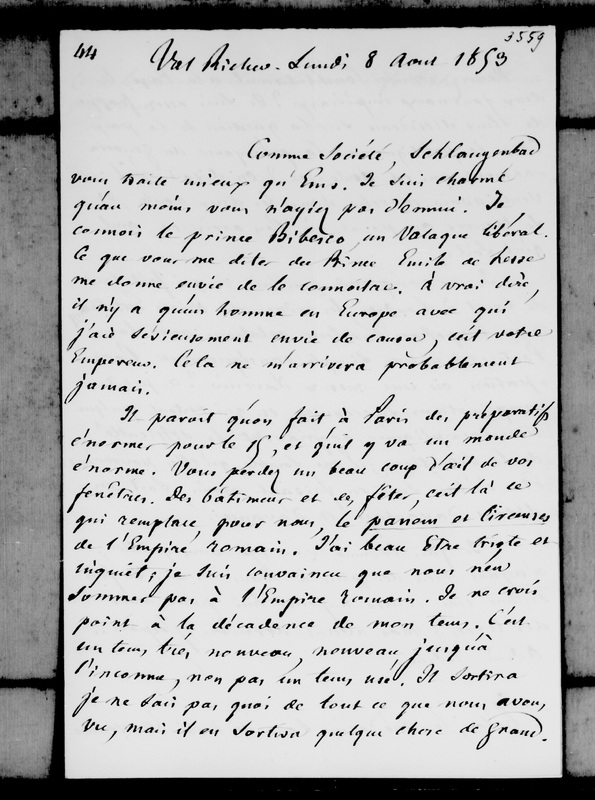 44
3559
Val Richer - Lundi 8 Aout 1853
Comme Société, Schlangenbad
vous traite mieux qu'Ems. Je suis charmé
qu'au moins vous n'ayiez pas d'ennui. Je
connois le prince Bibesco, un Valaque libéral.
Ce que vous me dites du Prince Emile de Hesse
me donne envie de le connoitre. À vrai dire,
il n'y a qu'un homme en Europe avec qui
j'aie sérieusement envie de causer, c'est votre
Empereur. Cela ne m'arrivera probablement
jamais.
Il paroit qu'on fait à Paris des préparatifs
énormes pour le 15, et qu'il y va un monde
énorme. Vous perdez un beau coup d'œil de vos
fenêtres. Des bâtimens et des fêtes, c'est là ce
qui remplace, pour nous, le panem et circenses
de l'Empire romain. J'ai beau être triste et
inquiet; je suis convaincu que nous n'en
sommes pas à l'Empire romain. Je ne crois
point à la décadence de mon tems. C'est
un tems très nouveau, nouveau jusqu'à
l'inconnu, non pas un tems usé. Il sortira
je ne sais pas quoi de tout ce que nous avons
vu, mais il en sortira quelque chose de grand.